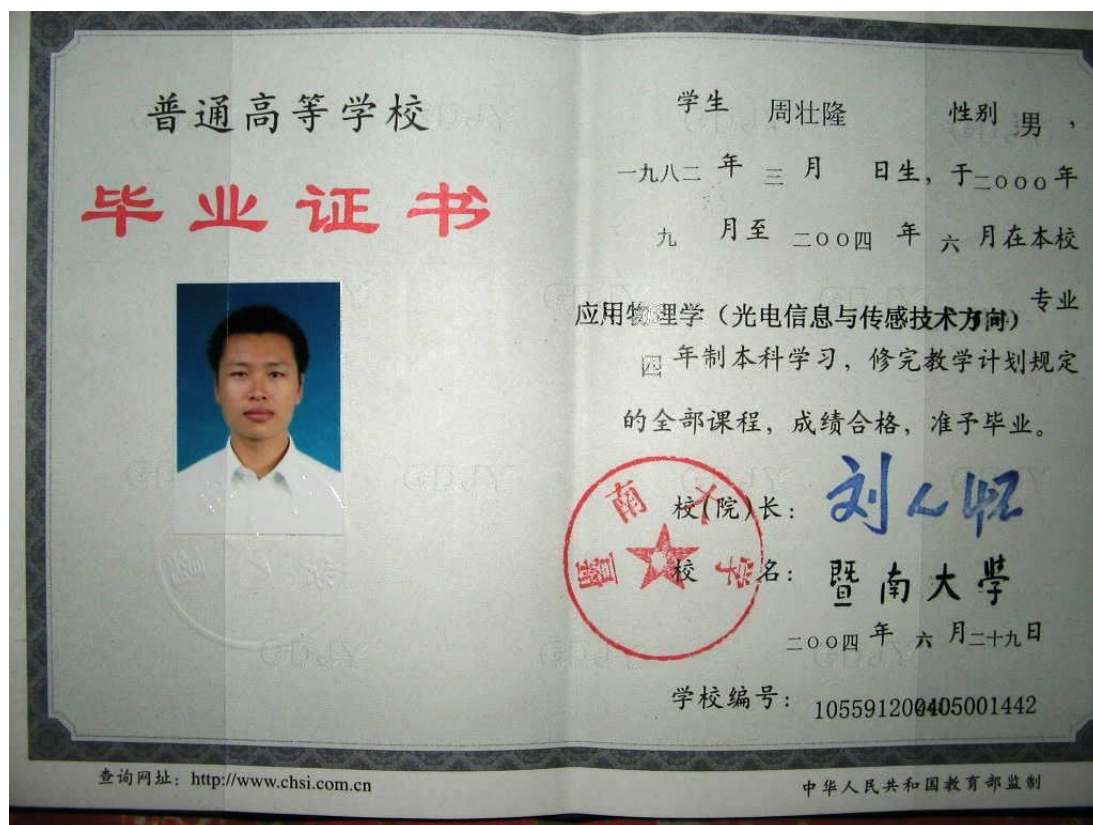 普通高等学校
毕业证书
学生 周壮隆 性别 男，
一九八二 年 三 月 日生，于二○○○年
九 月至 二○○四 年 六 月在本校
应用物理学（光电信息与传感技术方向） 专业
四 年制本科学习，修完教学计划规定
的全部课程，成绩合格，准予毕业。
校(院)长： 刘人怀
校 名： 暨南大学
暨南大学
二○○四 年 六 月二十九日
学校编号： 105591200405001442
查询网址：http://www.chsi.com.cn
中华人民共和国教育部监制